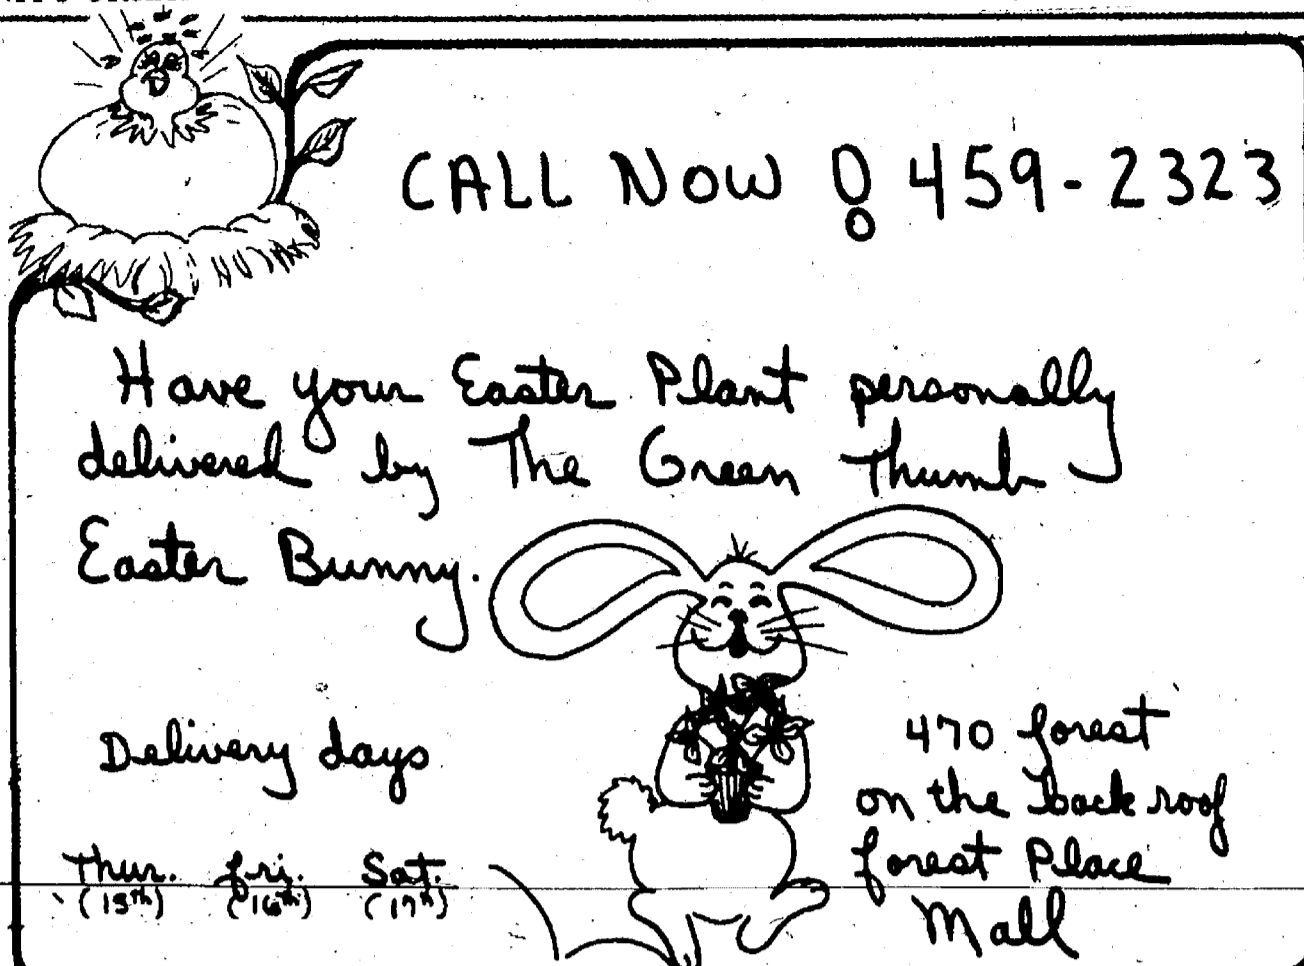 CALL NOW ! 459-2323
Have your Easter Plant personally
delivered by The Green Thumb
Easter Bunny.
Delivery days
Thur. Fri. Sat.
(15th) (16th) (17th)
470 Forest
on the back roof
Forest Place
Mall